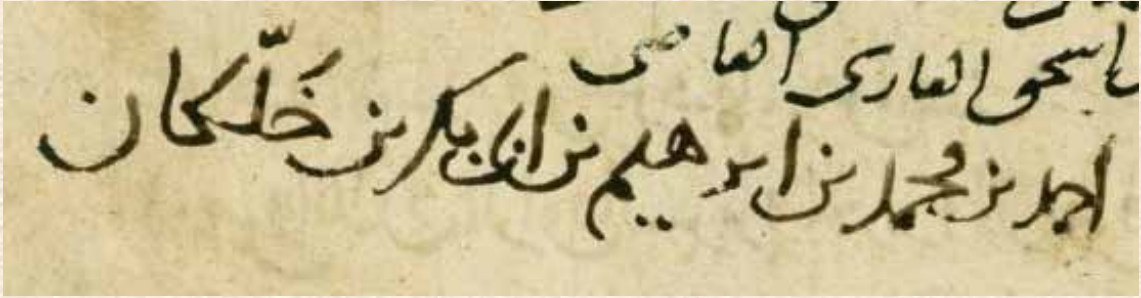 اسحق الفارى القاضى
احمد بن محمد بن ابرهيم بن ابى بكر بن خلّكان